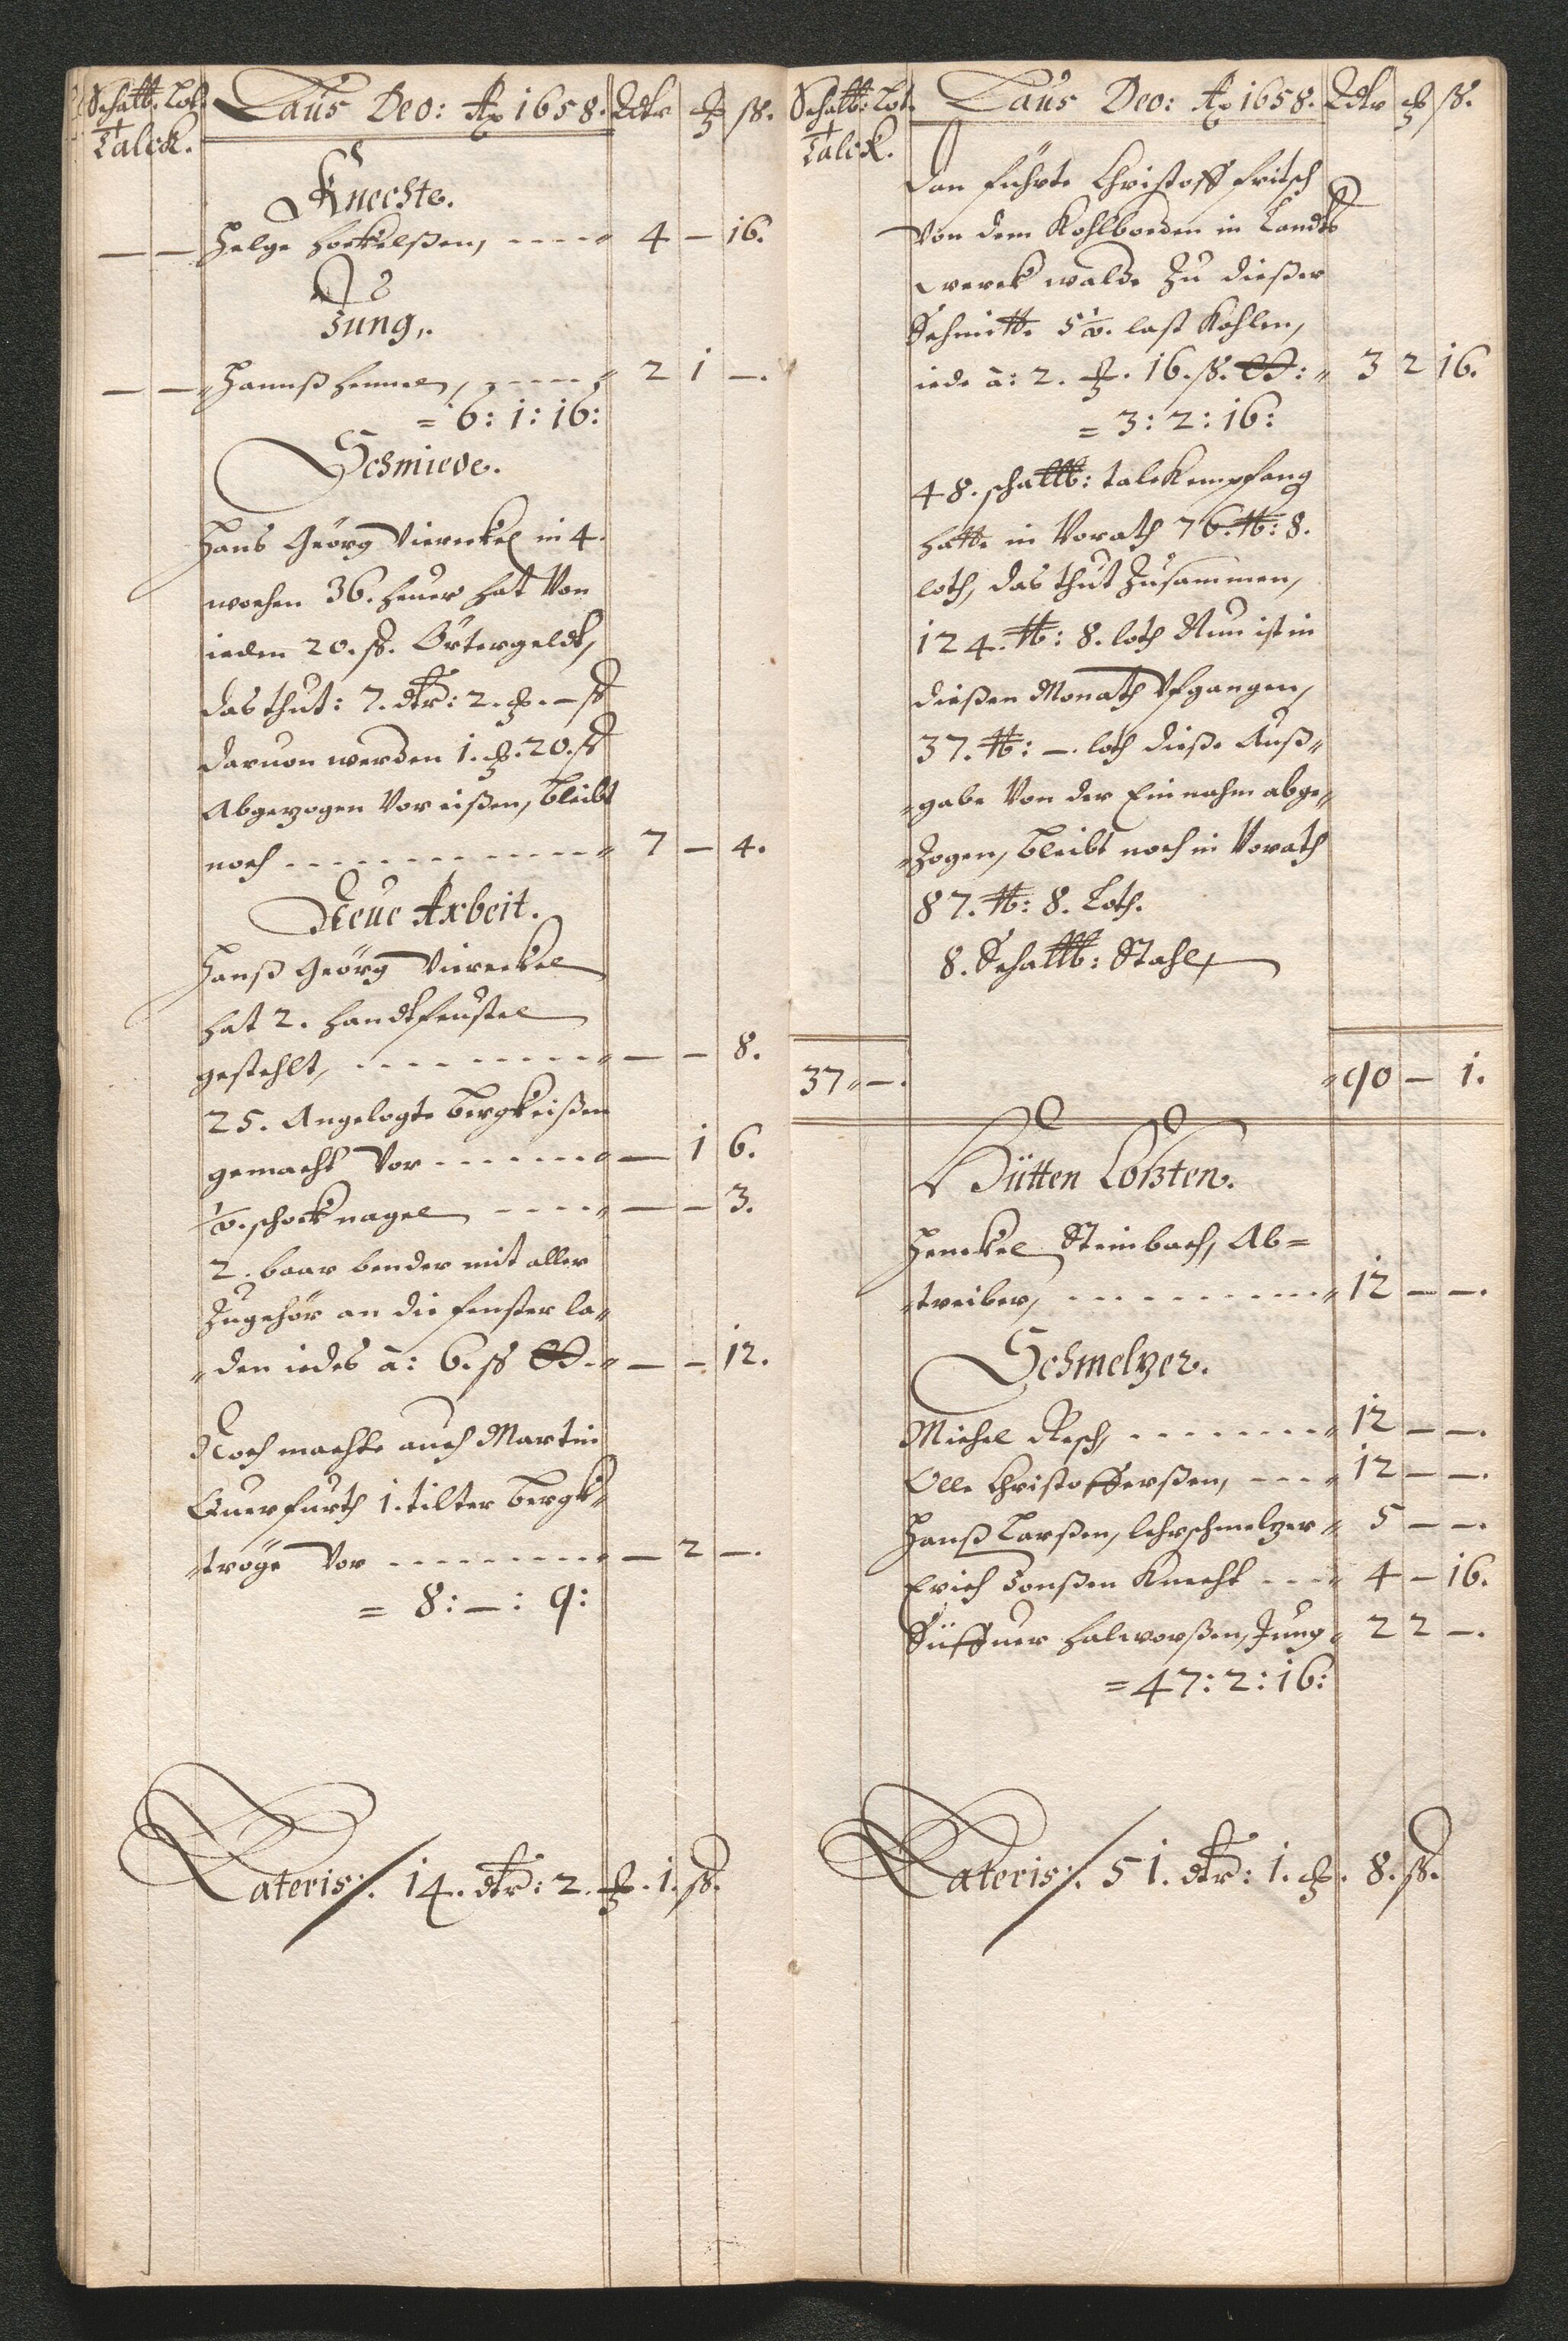 Schattb. Lot.
Talck.
Laus Deo: Ao 1658. Rdtr ƶ ß.
Knechte.
— — Helge Hoekelßen, - - - - 4 — 16.
Jung.
— — Hannß Hemmel, - - - - 2 1 —.
= 6: 1: 16:
Schmiede.
Hans Geörg Viereckel in 4.
wochen 36. heuer hat Von
ieden 20. ß. Örtergeldt,
das thut: 7. dtr: 2. ƶ. — ß
daruon werden 1. ƶ. 20. ß
Abgezogen Vor eißen, bleibt
noch - - - - - - - 7 — 4.
Neue Arbeit.
Hanß Geörg Viereckel
hat 2. handtfeustel
gestehlt, - - - - - - - — — 8.
25. Angelogte bergkeißen
gemacht Vor - - - - - - — 1 6.
½. schock nagel - - - - — — 3.
2. baar bender mit aller
Zugehör an die fenster la„
„den iedes à: 6. ß — — 12.
Noch machte auch Martin
Querfurth 1. tilter bergk„
„tröge Vor - - - - - - - — 2 —.
= 8: —: 9:
Lateris:/. 14. dtr: 2. ƶ. 1. ß.
Schattb: Lot.
Talck.
Laus Deo: Ao 1658. Rdtr ƶ ß.
Dan führte Christoff fritsch
Von dem Kohlborden in Landts
werck walde Zu dießer
Schmitte 5½. last Kohlen,
iede à: 2. ƶ. 16. ß. 3 2 16.
= 3: 2: 16:
48. schattb: talck empfang
hatte in Vorath 76. ℔: 8.
loth, das thut Zusammen,
124. ℔: 8. loth Nun ist in
dießen Monath Vfgangen,
37. ℔: —. loth dieße Auß„
„gabe Von der Einnahm abge„
„Zogen, bleibt noch in Vorath
87. ℔: 8. Loth.
8. Schattb: Stahl,
37 „ —. „ 90 — 1.
Hütten Coßten.
Henckel Steinbach, Ab=
„treiber, - - - - - - - 12 — —.
Schmelzer.
Michel Resch, - - - - - - 12 — —.
Olle Christofferßen, - - - 12 — —.
Hanß Larßen, lehrschmelzer „ 5 — —.
Erich Jonßen Knecht - - - 4 — 16.
Süffuer Halworßen, Jung „ 2 2 —.
= 47: 2: 16:
Lateris:/. 51. dtr: 1. ƶ. 8. ß.